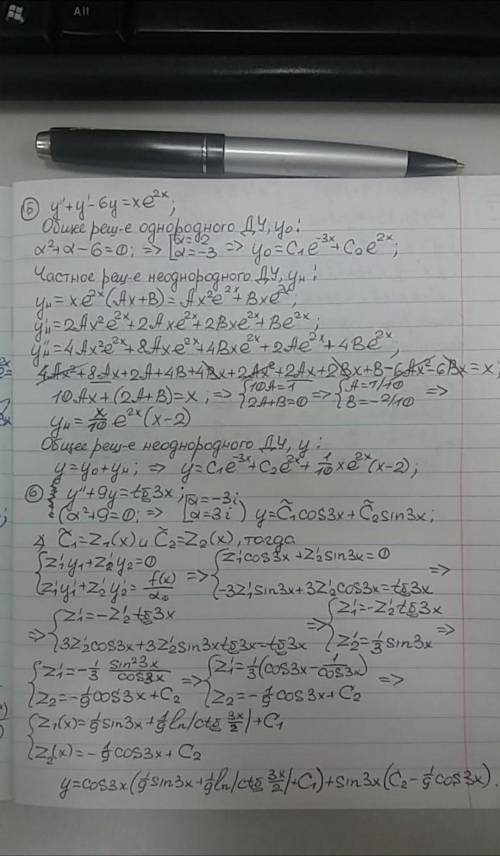 Alt
⑤ y''+y'-6y=xe^{2x};
Общее реш-е однородного ДУ, y₀:
α²+α-6=0; => [α=2 α=-3 => y₀=C₁e^{-3x}+C₂e^{2x};
Частное реш-е неоднородного ДУ, yн:
yн=xe^{2x}(Ax+B)=Ax²e^{2x}+Bxe^{2x};
y'н=2Ax²e^{2x}+2Axe^{2x}+2Bxe^{2x}+Be^{2x};
y''н=4Ax²e^{2x}+8Axe^{2x}+4Bxe^{2x}+2Ae^{2x}+4Be^{2x},
4Ax²+8Ax+2A+4B+4Bx+2Ax²+2Ax+2Bx+B-6Ax²-6Bx=x,
10Ax+(2A+B)=x; => {10A=1 2A+B=0 => {A=1/10 B=-2/10 =>
yн=x/10 e^{2x}(x-2)
Общее реш-е неоднородного ДУ, y:
y=y₀+yн; => y=C₁e^{-3x}+C₂e^{2x}+1/10 xe^{2x}(x-2);
⑥ y''+9y=tg3x;
(α²+9=0; => [α=-3i α=3i) y=C̃₁cos3x+C̃₂sin3x;
C̃₁=Z₁(x) и C̃₂=Z₂(x), тогда
{Z'₁y₁+Z'₂y₂=0 Z'₁y'₁+Z'₂y'₂=f(x)/α₀ => {Z'₁cos3x+Z'₂sin3x=0 -3Z'₁sin3x+3Z'₂cos3x=tg3x =>
=> {Z'₁=-Z'₂tg3x 3Z'₂cos3x+3Z'₂sin3xtg3x=tg3x => {Z'₁=-Z'₂tg3x Z'₂=1/3 sin3x =>
{Z'₁=-1/3 sin²3x/cos3x Z₂=-1/9 cos3x+C₂ => {Z'₁=1/3(cos3x-1/cos3x) Z₂=-1/9 cos3x+C₂ =>
{Z₁(x)=1/9 sin3x+1/9 ln|ctg 3x/2|+C₁
Z₂(x)=-1/9 cos3x+C₂
y=cos3x(1/9 sin3x+1/9 ln|ctg 3x/2|+C₁)+sin3x(C₂-1/9 cos3x).